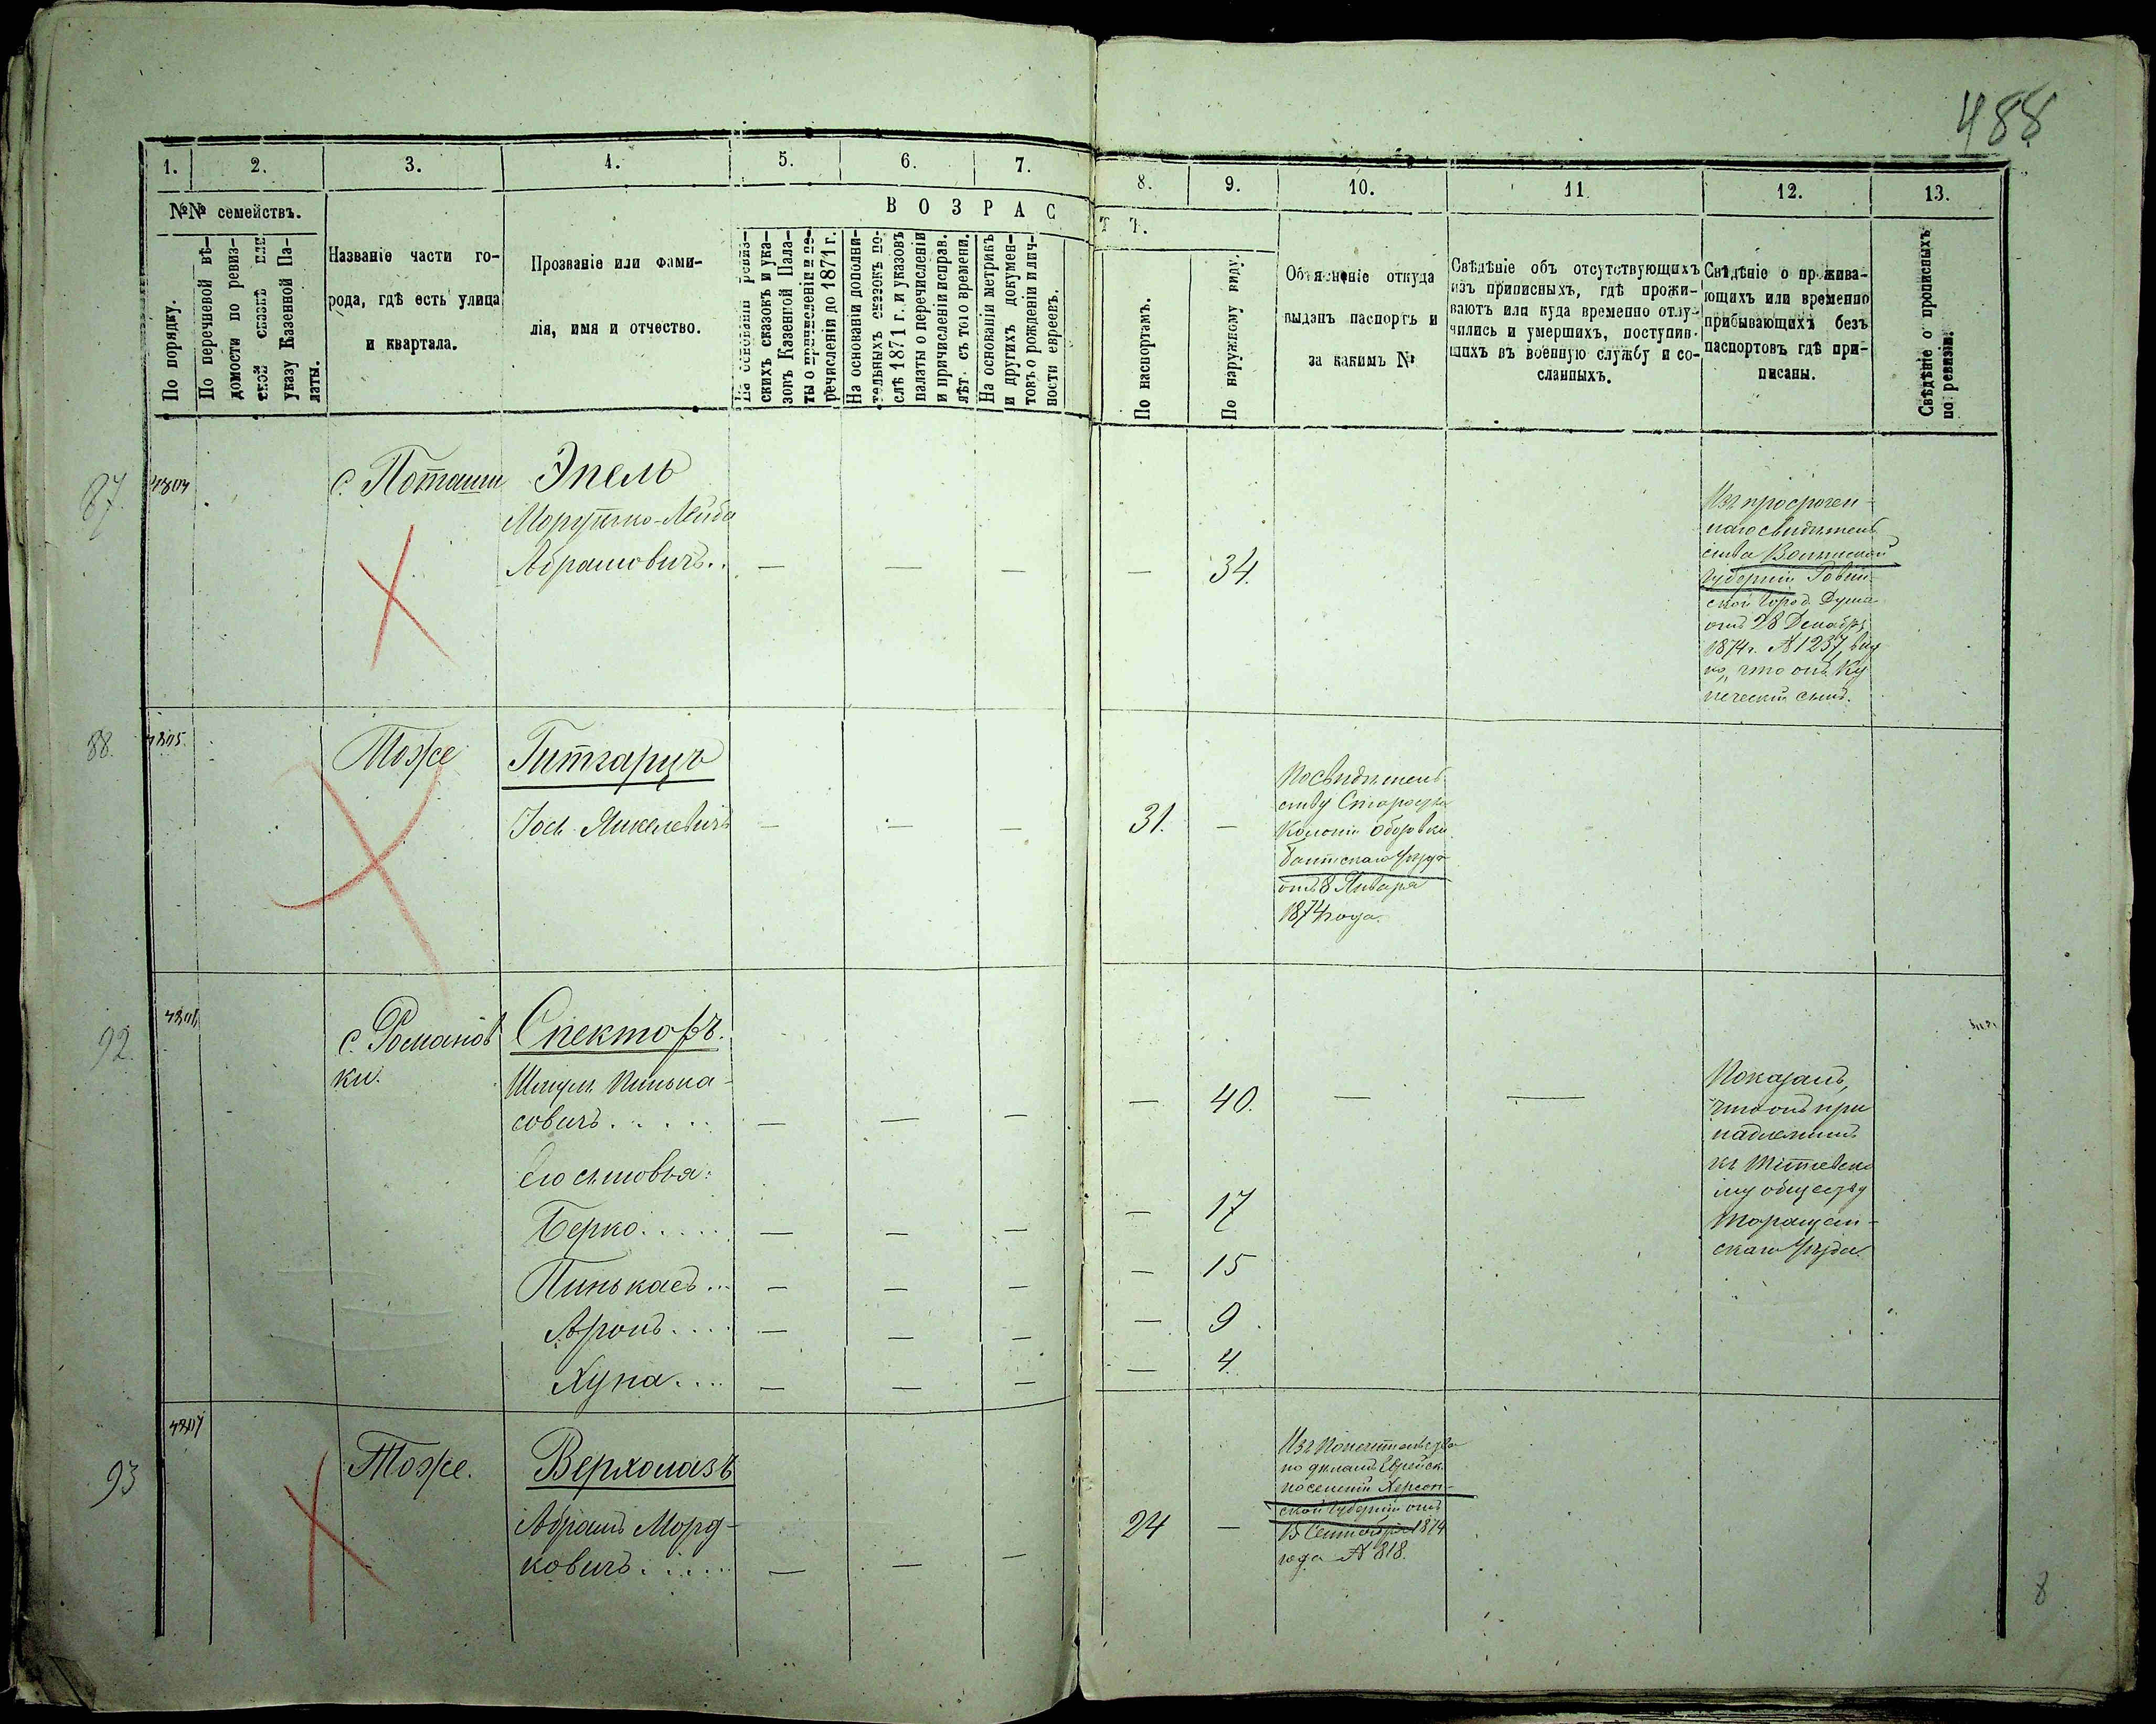 488
1.
2.
3.
4.
5.
6.
7.
8.
9.
10.
11
12.
13.
№№ семействъ.
По порядку.
По перечневой вѣ-
домости по ревиз-
ской сказкѣ или
указу Казенной Па-
латы.
Названіе части го-
рода, гдѣ есть улица
и квартала.
Прозваніе или фами-
лія, имя и отчество.
ВОЗРАС
ТЪ.
На основаніи ревиз-
скихъ сказокъ и ука-
зовъ Казенной Пала-
ты о причисленіи и пе-
речисленіи до 1871 г.
На основаніи дополни-
тельныхъ сказокъ по-
слѣ 1871 г. и указовъ
палаты о перечисленіи
и причисленіи исправ.
лѣт. съ того времени.
На основаніи метрикъ
и другихъ докумен-
товъ о рожденіи и лич-
ности евреевъ.
По паспортамъ.
По наружному виду.
Объясненіе откуда
выданъ паспортъ и
за какимъ №
Свѣдѣніе объ отсутствующихъ
изъ приписныхъ, гдѣ прожи-
ваютъ или куда временно отлу-
чились и умершихъ, поступив-
шихъ въ военную службу и со-
сланныхъ.
Свѣдѣніе о прожива-
ющихъ или временно
прибывающихъ безъ
паспортовъ гдѣ при-
писаны.
Свѣдѣніе о прописныхъ
по ревизіи.
87.
с. Поташи
Эпель
Мортко-Лейба
Абрамовичъ..
— — — — 34.
Изъ просрочен-
наго свидѣтель
ства Волынской
Губерніи Ровен-
ской Город. Думы
отъ 28 Декабря
1874 г. № 1237, вид
но, что онъ Ку
печескій сынъ.
88.
Тоже
Гитгарцъ
Іось Янкелевичъ
— — — 31. —
По свидѣтель
ству Старосты
Колоніи
Балтскаго Уѣзда
отъ 8 Января
1874 года.
92.
с. Романов
ки.
Спекторъ.
Шмуль Пинька-
совичъ.....
— — — — 40. — —
Показалъ,
что онъ при
надлежитъ
къ
му обществу
Таращан-
скаго Уѣзда.
Его сыновья:
Берко.....
— — — — 17
Пинькасъ...
— — — — 15
Аронъ....
— — — — 9
Хуна....
— — — — 4.
93
Тоже.
Верхолазъ
Абрамъ Мορд-
ковичъ......
— — — 24 —
Изъ Попечительства
по дѣламъ Еврейск.
поселеній Херсон-
ской Губерніи отъ
15 Сентября 1874
года № 818.
8